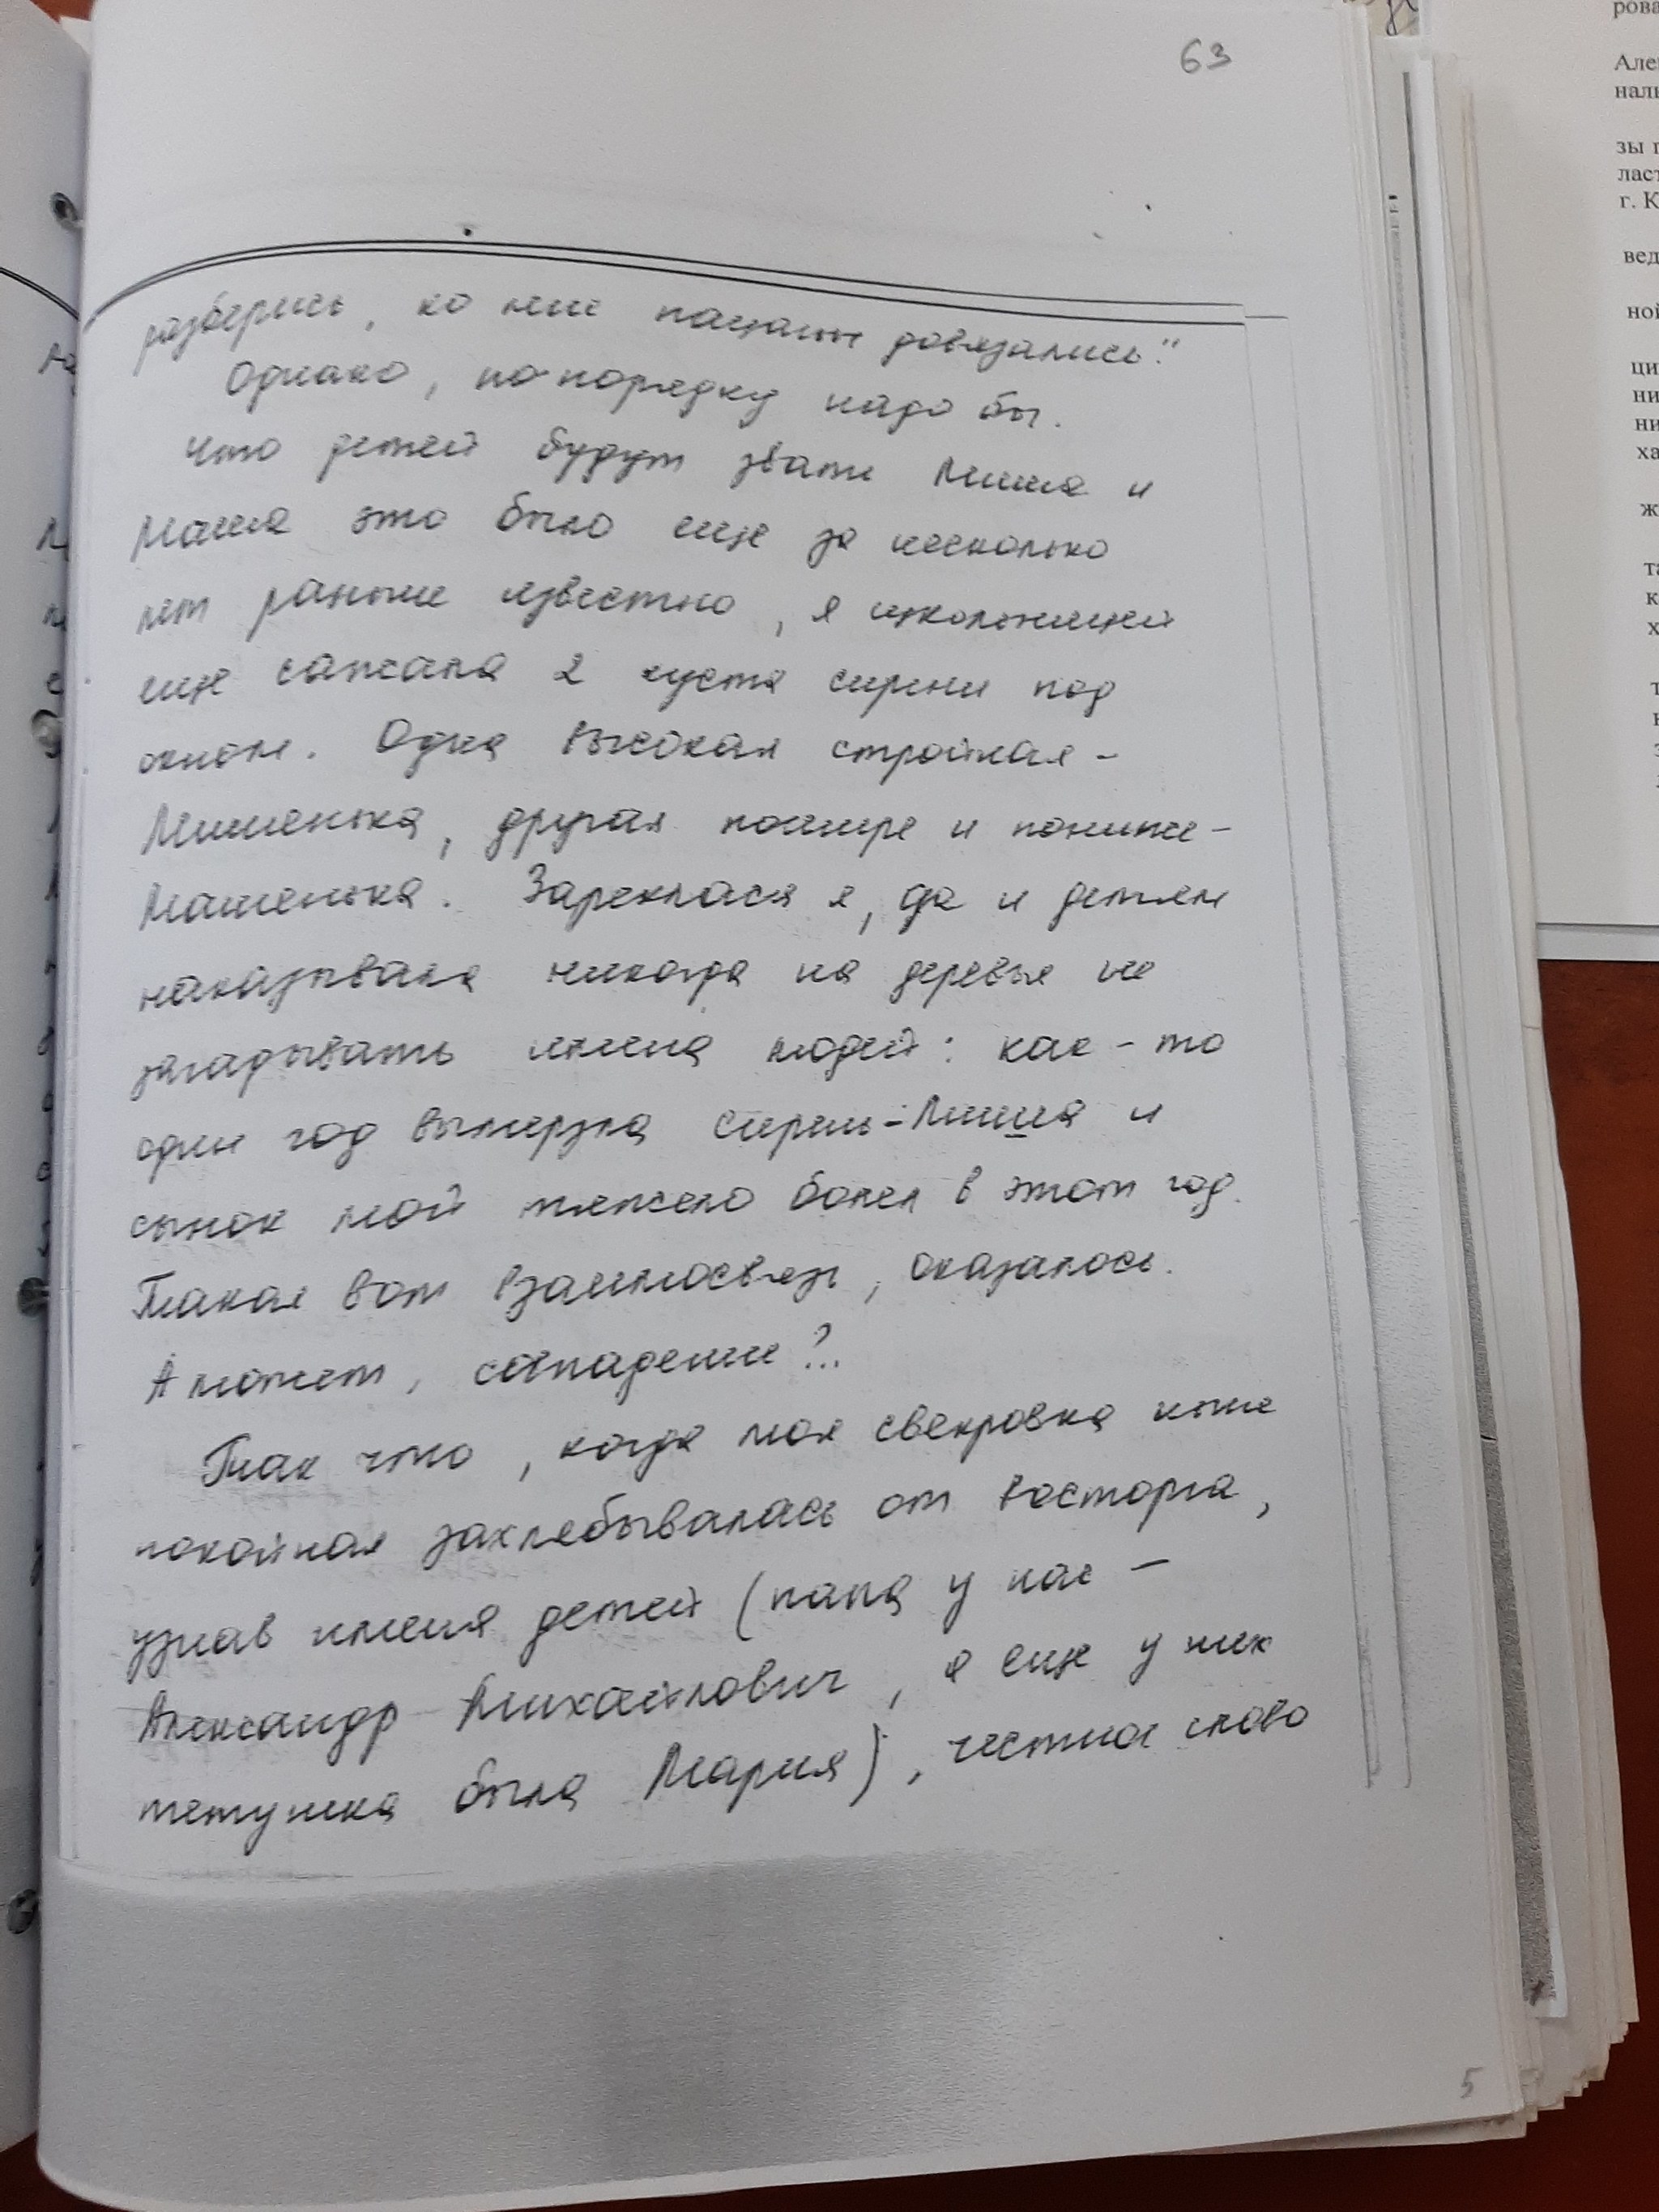 63
разберись, ко мне пацаны довязались."
Однако, по порядку надо бы.
Что детей будут звать Миша и
Маша это было еще за несколько
лет раньше известно, я школьницей
еще сажала 2 куста сирени под
окном. Одна высокая стройная -
Мишенька, другая пошире и пониже -
Машенька. Зареклася я, да и детям
наказывала никогда на деревья не
загадывать имена людей: как-то
один год вымерзла сирень-Миша и
сынок мой тяжело болел в этот год.
Такая вот взаимосвязь, оказалось.
А может, совпадение?..
Так что, когда моя свекровка ныне
покойная захлебывалась от восторга,
узнав имена детей (папа у нас -
Александр Михайлович, я еще у них
тетушка была Мария), честное слово
5
рова
Але
наль
зы п
ласт
г. К
вед
ной
ци
ни
ни
ха
ж
та
к
х